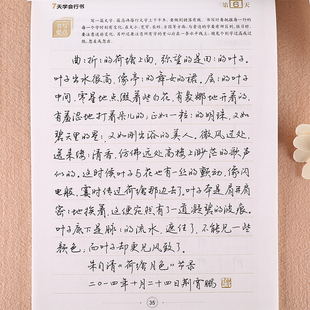 7天学会行书
第6天
曲:折:的荷塘上面,弥望的是田:的叶子。
叶子出水很高,像亭:的舞女的裙。层:的叶子
中间,零星地点缀着些白花,有袅娜地开着的,
有羞涩地打着朵儿的;正如一粒:的明珠,又如
碧天里的星:,又如刚出浴的美人。微风过处,
送来缕:清香,仿佛远处高楼上渺茫的歌声
似的。这时候叶子与花也有一丝的颤动,像闪
电般,霎时传过荷塘那边去了。叶子本是肩并肩
密:地挨着,这便宛然有了一道凝碧的波痕。
叶子底下是脉:的流水,遮住了,不能见一些
颜色;而叶子却更见风致了。
朱自清《荷塘月色》节录
二〇一四年十月二十四日荆霄鹏
35